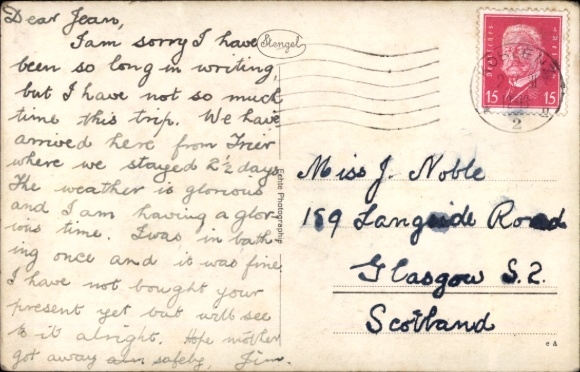 Dear Jean,
I am sorry I have
been so long in writing,
but I have not so much
time this trip. We have
arrived here from Trier
where we stayed 2½ days
The weather is glorious
and I am having a glor-
ious time. I was in bath-
ing once and it was fine
I have not bought your
present yet but will see
to it alright. Hope mother
got away safely, Jim.
Stengel
Echte Photographie
15 15
2
Miss J. Noble
159 Langside Road
Glasgow S.2.
Scotland
e A